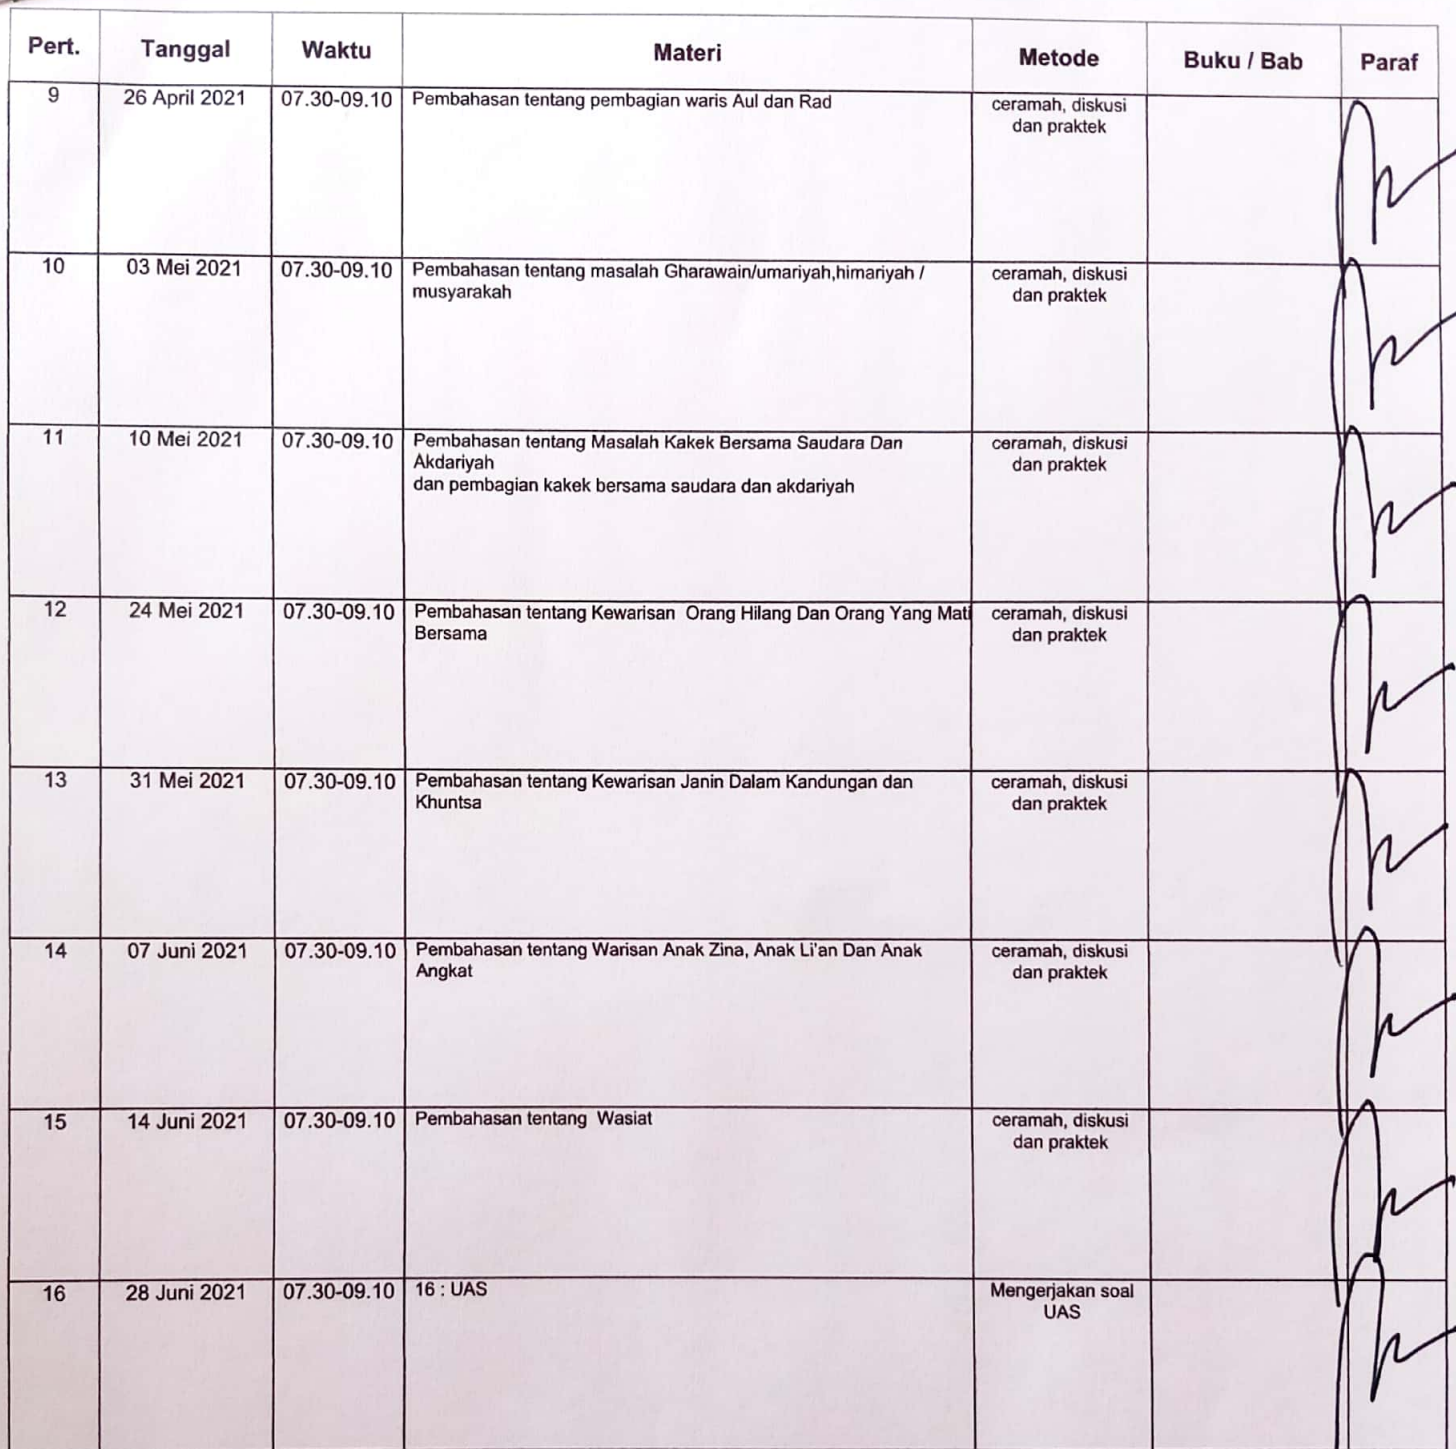 Pert. Tanggal Waktu Materi Metode Buku / Bab Paraf
9 26 April 2021 07.30-09.10 Pembahasan tentang pembagian waris Aul dan Rad ceramah, diskusi
dan praktek
10 03 Mei 2021 07.30-09.10 Pembahasan tentang masalah Gharawain/umariyah,himariyah / ceramah, diskusi
musyarakah dan praktek
11 10 Mei 2021 07.30-09.10 Pembahasan tentang Masalah Kakek Bersama Saudara Dan ceramah, diskusi
Akdariyah dan praktek
dan pembagian kakek bersama saudara dan akdariyah
12 24 Mei 2021 07.30-09.10 Pembahasan tentang Kewarisan Orang Hilang Dan Orang Yang Mati ceramah, diskusi
Bersama dan praktek
13 31 Mei 2021 07.30-09.10 Pembahasan tentang Kewarisan Janin Dalam Kandungan dan ceramah, diskusi
Khuntsa dan praktek
14 07 Juni 2021 07.30-09.10 Pembahasan tentang Warisan Anak Zina, Anak Li'an Dan Anak ceramah, diskusi
Angkat dan praktek
15 14 Juni 2021 07.30-09.10 Pembahasan tentang Wasiat ceramah, diskusi
dan praktek
16 28 Juni 2021 07.30-09.10 16 : UAS Mengerjakan soal
UAS